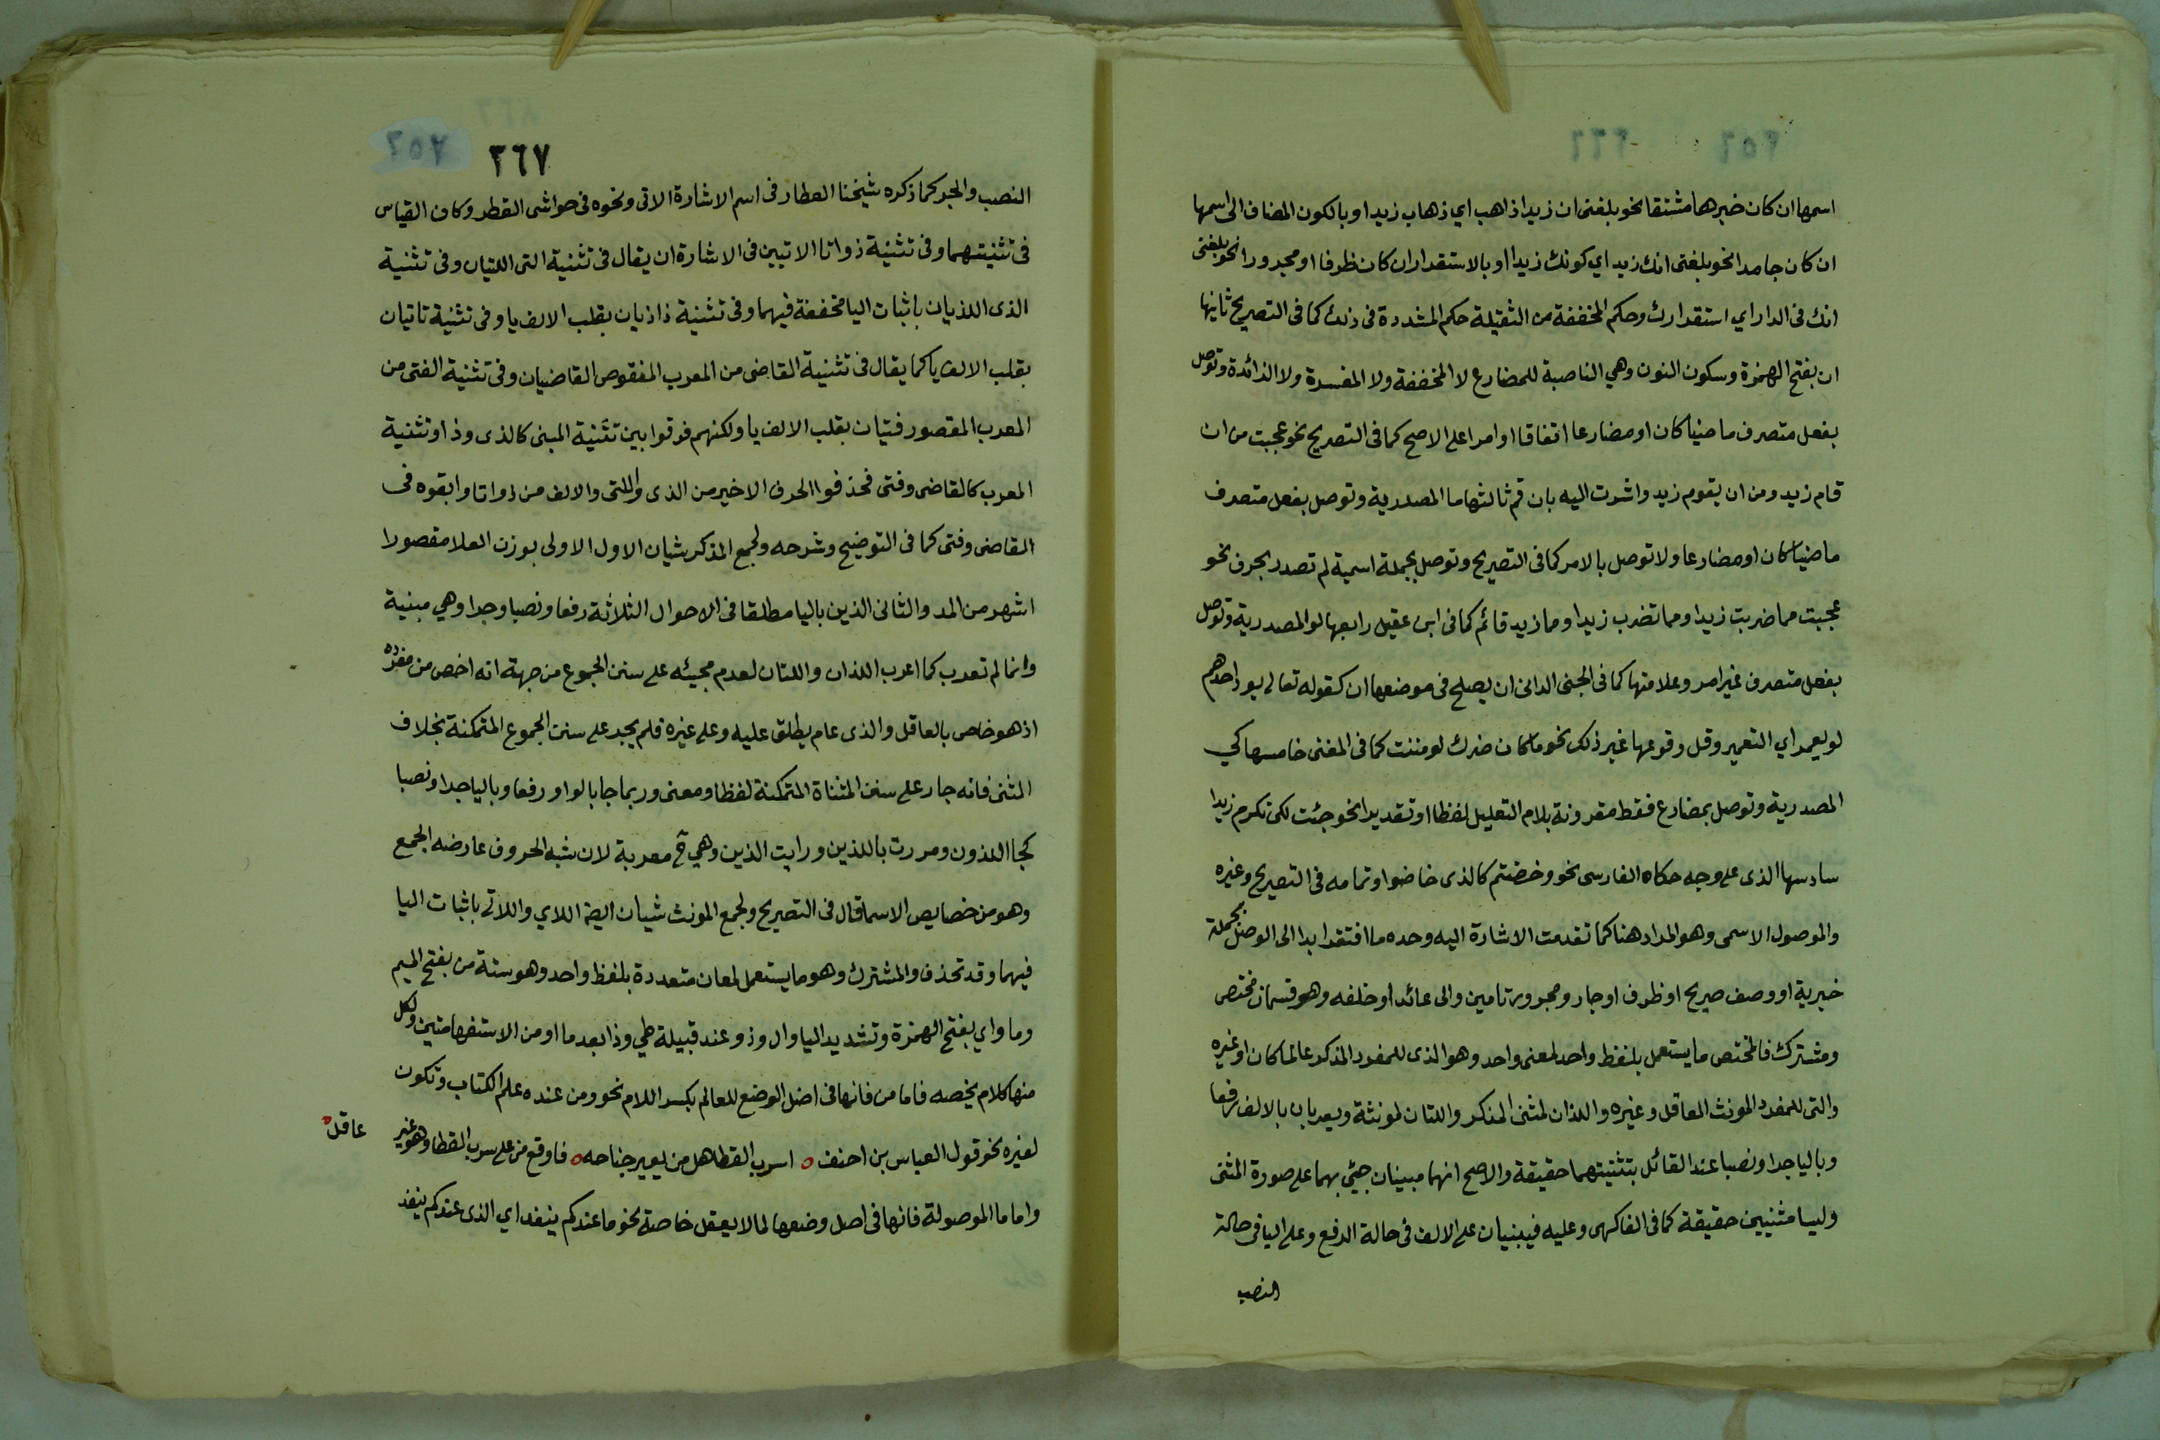 اسمها ان كان خبرها مشتقا نحو بلغنى ان زيدا ذاهب اي ذهاب زيد او بالكون المضاف الى اسمها
ان كان جامدا نحو بلغنى انك زيد اي كونك زيدا او بالاستقرار ان كان ظرفا او مجرورا نحو بلغنى
انك فى الدار اي استقرارك وحكم المخففة من الثقيلة حكم المشددة فى ذلك كما فى التصريح ثانيها
ان بفتح الهمزة وسكون النون وهي الناصبة للمضارع لا المخففة ولا المفسرة ولا الزائدة وتوصل
بفعل متصرف ماضيا كان او مضارعا اتفاقا او امرا على الاصح كما فى التصريح نحو عجبت من ان
قام زيد ومن ان يقوم زيد واشرت اليه بان قم ثالثها ما المصدرية وتوصل بفعل متصرف
ماضيا كان او مضارعا ولا توصل بالامر كما فى التصريح وتوصل بجملة اسمية لم تصدر بحرف نحو
عجبت مما ضربت زيدا ومما تضرب زيدا وما زيد قائم كما فى ابن عقيل رابعها لو المصدرية وتوصل
بفعل متصرف غير امر وعلامتها كما فى الجنى الدانى ان يصلح فى موضعها ان كقوله تعالى يود احدهم
لو يعمر اي التعمير وقل وقوعها غير ذلك نحو ما كان ضرك لو مننت كما فى المغنى خامسها كي
المصدرية وتوصل بمضارع فقط مقرونة بلام التعليل لفظا او تقديرا نحو جئت لكى تكرم زيدا
سادسها الذى على وجه حكاه الفارسى نحو وخضتم كالذى خاضوا وتمامه فى التصريح وغيره
والموصول الاسمى وهو المراد هنا كما تقدمت الاشارة اليه وحده ما افتقر ابدا الى الوصل بجملة
خبرية او وصف صريح او ظرف او جار ومجرور تامين والى عائد او خلفه وهو قسمان مختص
ومشترك فالمختص ما يستعمل بلفظ واحد لمعنى واحد وهو الذى للمفرد المذكر عالما كان او غيره
والتى للمفرد المونث العاقل وغيره واللذان لمثنى المذكر واللتان لمونثة ويعربان بالالف رفعا
وباليا جرا ونصبا عند القائل بتثنيتهما حقيقة والاصح انهما مبنيان جيئ بهما على صورة المثنى
وليسا مثنيين حقيقة كما فى الفاكهى وعليه فيبنيان على الالف فى حالة الرفع وعلى اليا فى حالة
النصب
٣٦٧
٢٥٧
النصب والجر كما ذكره شيخنا العطار فى اسم الاشارة الاتى ونحوه فى حواشى القطر وكان القياس
فى تثنيتهما وفى تثنية ذواتا الاتيين فى الاشارة ان يقال فى تثنية التى اللتيان وفى تثنية
الذى اللذيان باثبات اليا مخففة فيهما وفى تثنية ذا ذيان بقلب الالف يا وفى تثنية تا تيان
بقلب الالف يا كما يقال فى تثنية القاضى من المعرب المنقوص القاضيان وفى تثنية الفتى من
المعرب المقصور فتيان بقلب الالف يا ولكنهم فرقوا بين تثنية المبنى كالذى وذا وتثنية
المعرب كالقاضى وفتى فحذفوا الحرف الاخير من الذى واللتى والالف من ذا وتا وابقوه فى
القاضى وفتى كما فى التوضيح وشرحه ولجمع المذكر شيان الاول الاولى بوزن العلا مقصورا
اشهر من المد والثانى الذين باليا مطلقا فى الاحوال الثلاثة رفعا ونصبا وجرا وهي مبنية
وانما لم تعرب كما اعرب اللذان واللتان لعدم مجيئه على سنن الجموع من جهة انه اخص من مفرده
اذ هو خاص بالعاقل والذى عام يطلق عليه وعلى غيره فلم يجر على سنن الجموع المتمكنة بخلاف
المثنى فانه جار على سنن المثناة المتمكنة لفظا ومعنى وربما جا بالواو رفعا وباليا جرا ونصبا
كجا اللذون ومررت باللذين ورايت الذين وهي ح معربة لان شبه الحروف عارضه الجمع
وهو من خصايص الاسما قال فى التصريح ولجمع المونث شيان ايضا اللاي واللاتى باثبات اليا
فيهما وقد تحذف والمشترك وهو ما يستعمل لمعان متعددة بلفظ واحد وهو ستة من بفتح الميم
وما واي بفتح الهمزة وتشديد اليا وال وذو عند قبيلة طي وذا بعد ما او من الاستفهامتين ولكل
منها كلام يخصه فاما من فانها فى اصل الوضع للعالم بكسر اللام نحو ومن عنده علم الكتاب وتكون
لغيره نحو قول العباس بن احنف ٥ اسرب القطا هل من يعير جناحه ٥ فاوقع من على سرب القطا وهو غير
عاقل
واما ما الموصولة فانها فى اصل وضعها لما لا يعقل خاصة نحو ما عندكم ينفد اي الذى عندكم ينفد